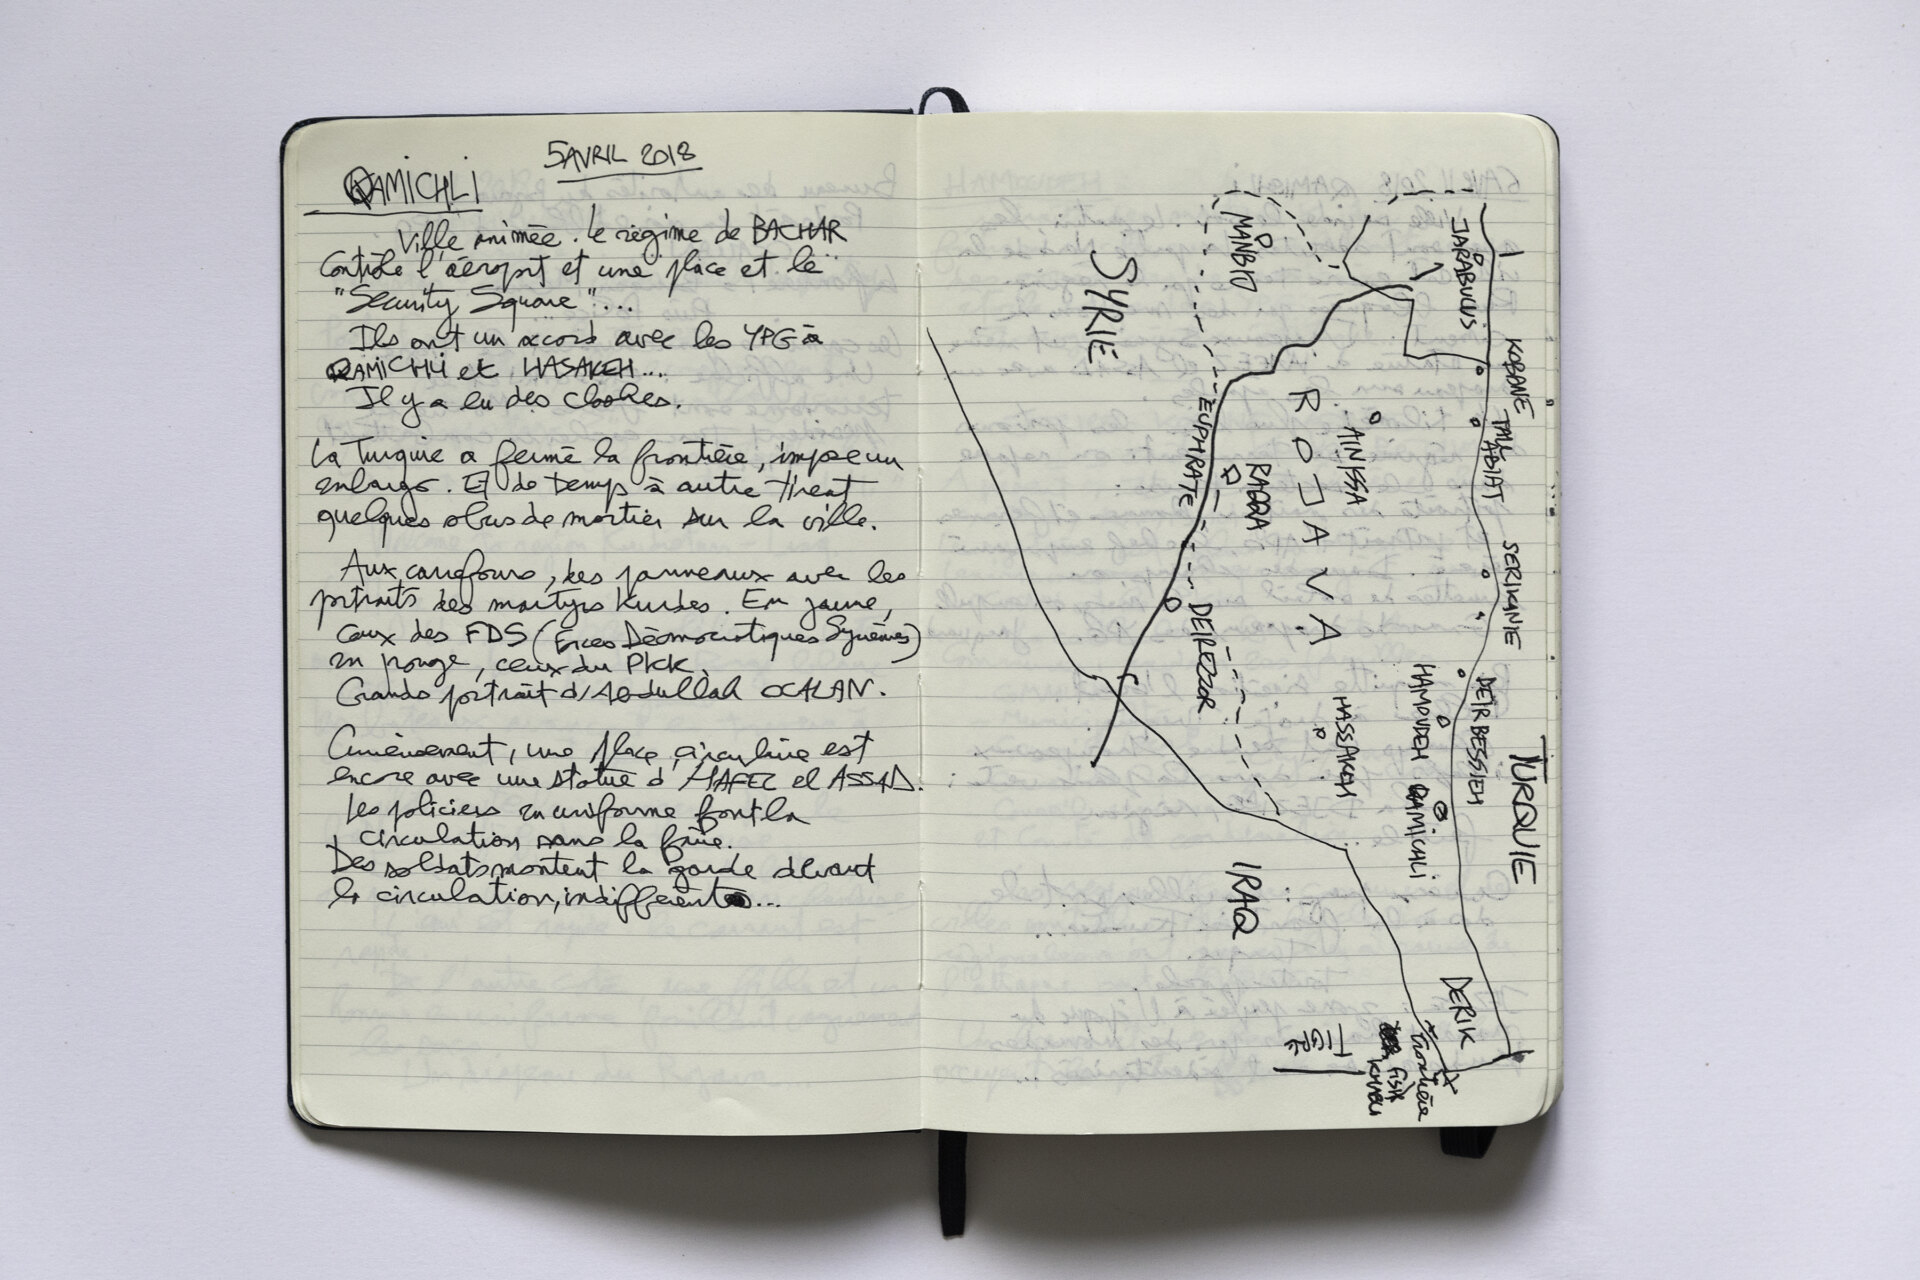 5 AVRIL 2018
QAMICHLI
Ville animée. Le régime de BACHAR
Contrôle l'aéroport et une place et le
"Security Square"...
Ils ont un accord avec les YPG à
QAMICHLI et HASAKEH...
Il y a eu des clashes.
La Turquie a fermé la frontière, impose un
embargo. Et de temps à autre tirent
quelques obus de mortier sur la ville.
Aux carrefours, des panneaux avec les
portraits des martyrs Kurdes. En jaune,
ceux des FDS (Forces Démocratiques Syriennes)
en rouge, ceux du PKK.
Grands portrait d'Abdullah OCALAN.
Curieusement, une place circulaire est
encore avec une statue d'HAFEZ el ASSAD.
Les policiers en uniforme font la
circulation dans la
Des soldats montent la garde devant
la circulation, indifférents...
SYRIE
MANBIJ
JARABULUS
KOBANE
TALL ABIAT
ROJAVA
AIN ISSA
RAQQA
EUPHRATE
SERIKANIE
DEIREZZOR
DEIRBESSIEH
HAMOUDEH
HASSAKEH
QAMICHLI
TURQUIE
IRAQ
DERIK
TIGRE
frontière
FISH
KHABU